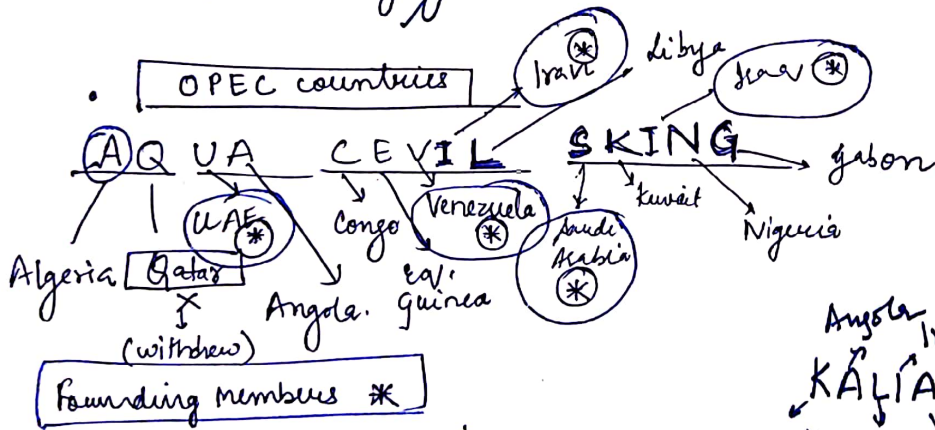 OPEC countries
Iran *
Libya
Iraq *
A Q U A C E V I L S K I N G
Gabon
Kuwait
UAE *
Congo
Venezuela *
Saudi Arabia *
Nigeria
Algeria
Qatar
X
Angola.
Eq. Guinea
(withdrew)
Angola
Founding members *
KALIA